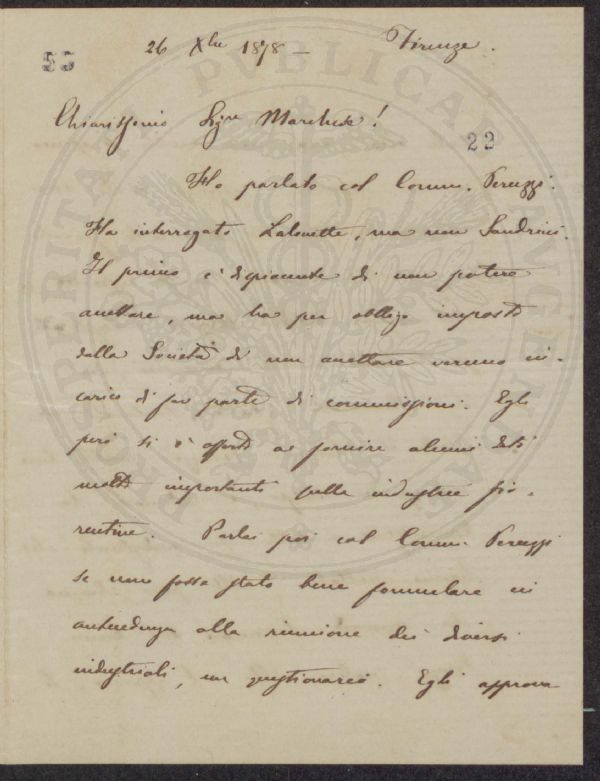 55
26 Xbre 1878 — Firenze.
Chiarissimo Sigre Marchese!
22
Ho parlato col Comm. Peruzzi.
Ha interrogato Lalouette, ma non Sandrini.
Il primo è dispiacente di non potere
accettare, ma ha per obbligo imposto
dalla Società di non accettare veruno in-
carico di far parte di commissioni. Egli
però si è offerto a fornire alcuni dati
molto importanti sulle industrie fio-
rentine. Parlai poi col Comm. Peruzzi
se non fosse stato bene formulare in
antecedenza alla riunione dei diversi
industriali, un questionario. Egli approva